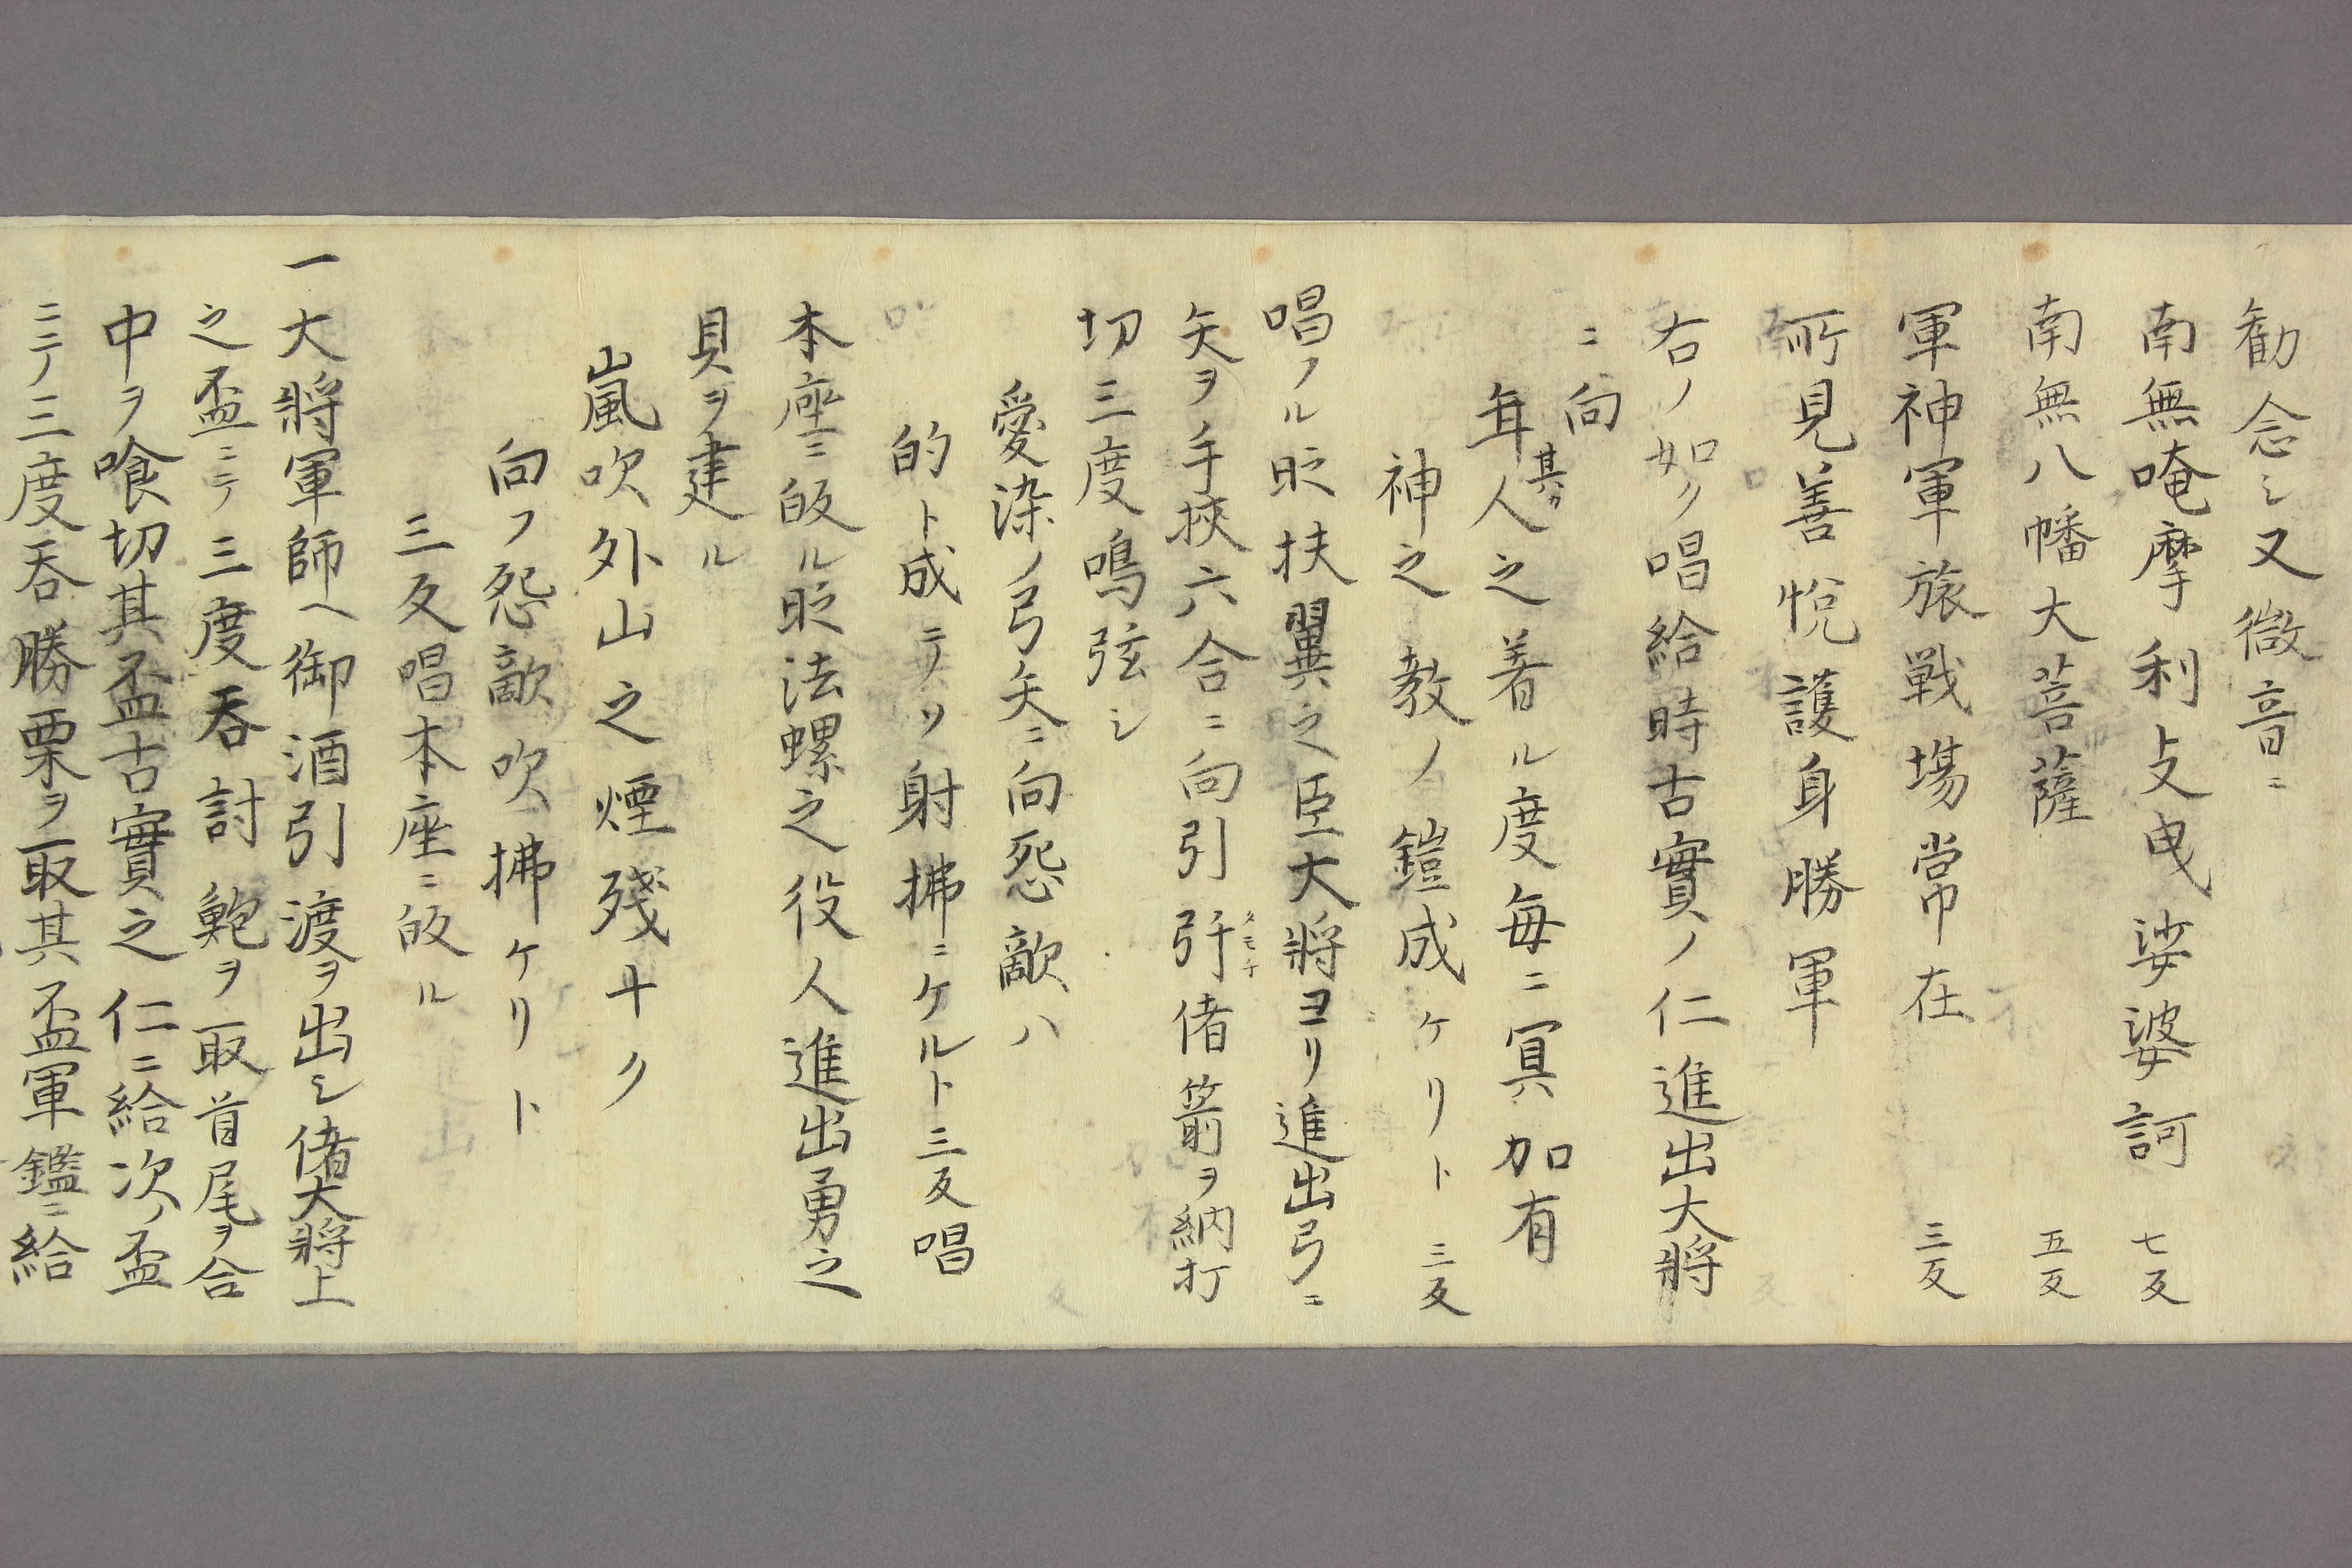 勧念シ又微音ニ
南無唵摩利支曳娑婆訶 七反
南無八幡大菩薩 五反
軍神軍旅戦場常在 三反
所見善悦護身勝軍
右ノ如ク唱給時古實ノ仁進出大将
ニ向
其カ人之着ル度毎ニ冥加有
神之教ノ鎧成ケリト 三反
唱ル時扶翼之臣大将ヨリ進出弓ニ
矢ヲ手挾六合ニ向引偖箭ヲ納打
切三度鳴弦シ
愛染ノ弓矢ニ向怨敵ハ
的ト成テソ射拂ニケルト三反唱
本座ニ皈ル時法螺之役人進出勇之
貝ヲ建ル
嵐吹外山之煙殘ナク
向フ怨敵吹拂ケリト
三反唱本座ニ皈ル
一大将軍師ヘ御酒引渡ヲ出シ偖大将上
之盃ニテ三度呑討鮑ヲ取首尾ヲ合
中ヲ喰切其盃古實之仁ニ給次ノ盃
ニテ三度呑勝栗ヲ取其盃軍鑑ニ給